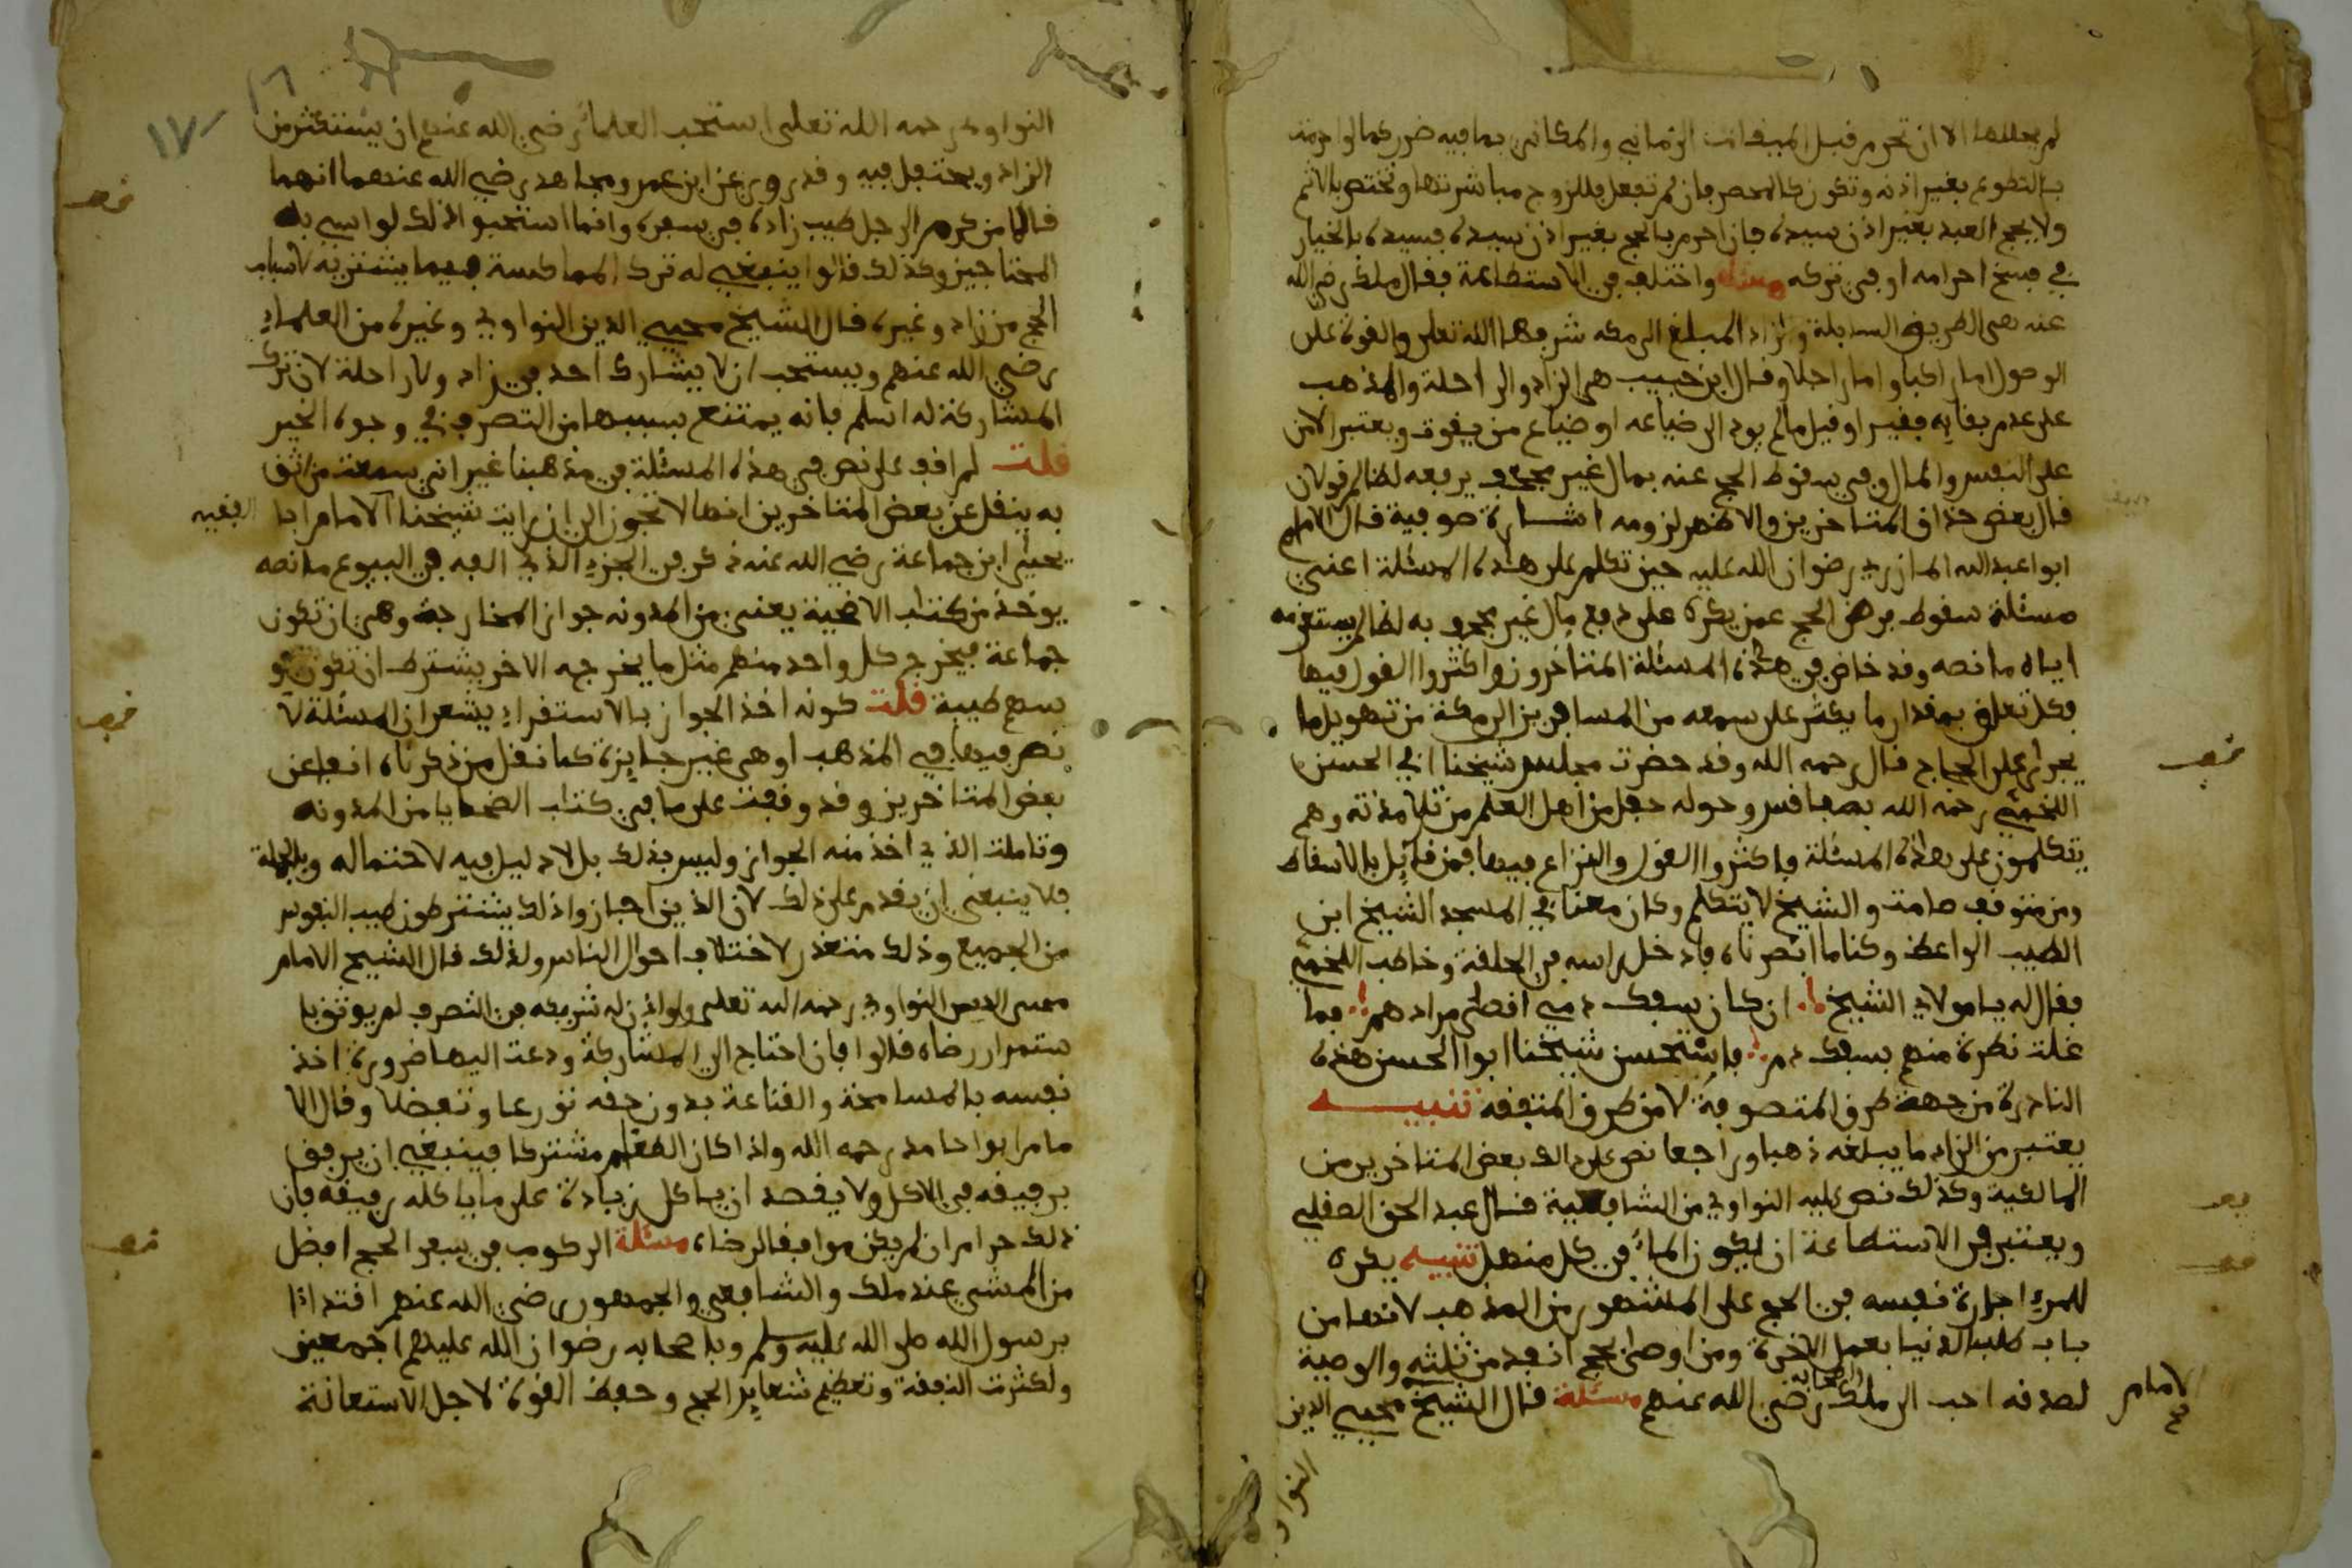 لم يحللها الا ان تحرم قبل الميقات الزماني والمكاني بما فيه ضرر كما لو احرمت
بالتطوع بغير اذنه وتكون كالمحصر فان لم تفعل فللزوج مباشرتها وتختص بالاثم
ولا يحج العبد بغير اذن سيده فان احرم بالحج بغير اذن سيده فسيده بالخيار
في فسخ احرامه او في تركه مسئلة واختلف في الاستطاعة فقال ملك رضي الله
عنه هي الطريق السابلة والزاد المبلغ الى مكه شرفها الله تعلى والقوة على
الوصول اما راكبا واما راجلا وقال ابن حبيب هي الزاد والراحلة والمذهب
على عدم بقايه فقيرا وقيل ما لم يود الى ضياعه او ضياع من يقوت ويعتبر الامن
على النفس والمال وفي سقوط الحج عنه بمال غير مجحف يدفعه لظالم قولان
قال بعض حذاق المتاخرين والاظهر لزومه اشارة صوفية قال الامام
ابو عبد الله المازري رضوان الله عليه حين تكلم على هذه المسئلة اعني
مسئلة سقوط فرض الحج عمن يكره على دفع مال غير مجحف به لظالم يستغرمه
اياه ما نصه وقد خاض في هذه المسئلة المتاخرون واكثروا القول فيها
فكل تعلق بمقدار ما يكثر على سمعه من المسافرين الى مكة من تهويل ما
يجرى على الحجاج قال رحمه الله وقد حضرت مجلس شيخنا ابي الحسن
اللخمي رحمه الله بصفاقس وحوله حفل من اهل العلم من تلامذته وهم
يتكلمون على هذه المسئلة فاكثروا القول والنزاع فيها فمن قايل بالاسقاط
ومن متوقف صامت والشيخ لا يتكلم وكان معنا في المسجد الشيخ ابن
الطيب الواعظ وكنا ما ابصرناه فادخل راسه في الحلقة وخاطب اللخمي
فقال له يا مولاي الشيخ ان كان سفك دمي اقصى مرادهم فما
غلت نظرة منهم بسفك دم فاستحسن شيخنا ابو الحسن هذه
النادرة من جهة طرق المتصوفة لا من طرق المتفقه تنبيه
يعتبر من الزاد ما يبلغه ذهبا وراجعا نص على ذالك بعض المتاخرين من
المالكية وكذلك نص عليه النواوي من الشافعية قال عبد الحق الصقلي
ويعتبر في الاستطاعة ان يكون الماء في كل منهل تنبيه يكره
للمرء اجارة نفسه في الحج على المشهور من المذهب لانها من
باب طلب الدنيا بعمل الاخرة ومن اوصى بحج انفد من ثلثه والوصية
لصدقه احب الى ملك واصحابه رضي الله عنهم مسئلة قال الشيخ محيي الدين
الامام
النواوي
١٧
النواوي رحمه الله تعلى استحب العلماء رضي الله عنهم ان يستكثر من
الزاد ويحتفل فيه وقد روي عن ابن عمر ومجاهد رضي الله عنهما انهما
قالا من كرم الرجل طيب زاده في سفره وانما استحبوا ذلك لمواسي به
المحتاجين وكذلك قالوا ينبغي له ترك المماكسة فيما يشتريه لاسباب
الحج من زاد وغيره قال الشيخ محيي الدين النواوي وغيره من العلماء
رضي الله عنهم ويستحب ان لا يشارك احد في زاد ولا راحلة لان ترك
المشاركة له اسلم فانه يمتنع بسببها من التصرف في وجوه الخير
قلت لم اقف على نص في هذه المسئلة في مذهبنا غير اني سمعت من اثق
به ينقل عن بعض المتاخرين انها لا تجوز الى ان رايت شيخنا الامام ابا
الفقيه
يحيى ابن جماعة رضي الله عنه ذكر في الجزء الذي الفه في البيوع ما نصه
يوخذ من كتاب الاضحية يعنى من المدونه جواز المخارجة وهي ان تكون
جماعة فيخرج كل واحد منهم مثل ما يخرجه الاخر بشترط ان تكون
سهم طيبة قلت كونه اخذ الجواز بالاستقراء يشعر ان المسئلة لا
نص فيها في المذهب او هي غير جايزة كما نقل من ذكرناه انفا عن
بعض المتاخرين وقد وقفت على ما في كتاب الضحايا من المدونه
وتاملت الذي اخذ منه الجواز وليس بذلك بل لا دليل فيه لاحتماله وبالجملة
فلا ينبغى ان يقدم على ذلك لان الذين اجازوا ذلك يشترطون طيب النفوس
من الجميع وذلك متعذر لاختلاف احوال الناس ولذلك قال الشيخ الامام
محيى الدين النواوي رحمه الله تعلى ولو اذن له شريكه في التصرف لم يوثق با
ستمرار رضاه قالوا فان احتاج الى المشاركة ودعت اليها ضرورة اخذ
نفسه بالمسامحة والقناعة بدون حقه تورعا وتفضلا وقال الا
مام ابو حامد رحمه الله واذا كان الطعام مشتركا فينبغي ان يرفق
برفيقه في الاكل ولا يقصد ان ياكل زيادة على ما ياكله رفيقه فان
ذلك حرام ان لم يكن موافقا لرضاه مسئلة الركوب في سفر الحج افضل
من المشي عند ملك والشافعي والجمهور رضي الله عنهم اقتداءا
برسول الله صلى الله عليه وسلم وباصحابه رضوان الله عليهم اجمعين
ولكثرت النفقة وتعظيم شعاير الحج وحفظ القوة لاجل الاستعانة